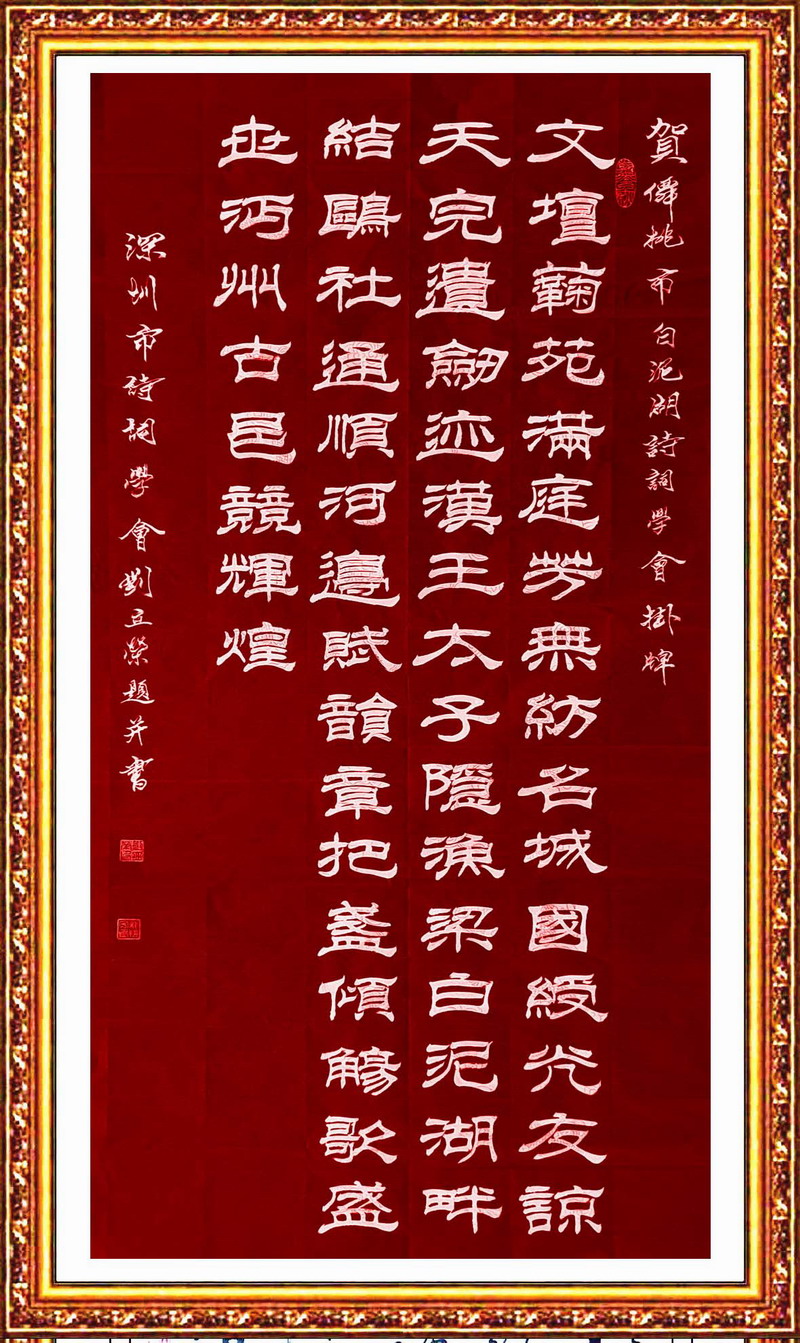 賀僊桃市白泥湖詩詞學會掛牌
文壇蘜苑滿庭芳無紡名城國綬光友諒
天完遺劒迹漢王太子隱漁梁白泥湖畔
結鷗社通順河邊賦韻章把盞傾觴歌盛
世沔州古邑競輝煌
深圳市詩詞學會劉立榮題并書